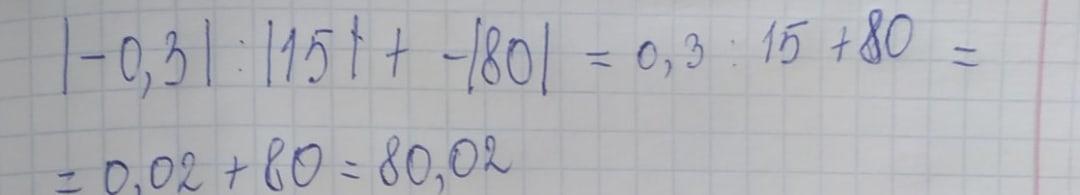 |-0,3| : |15| + -|80| = 0,3 : 15 + 80 =
= 0,02 + 80 = 80,02